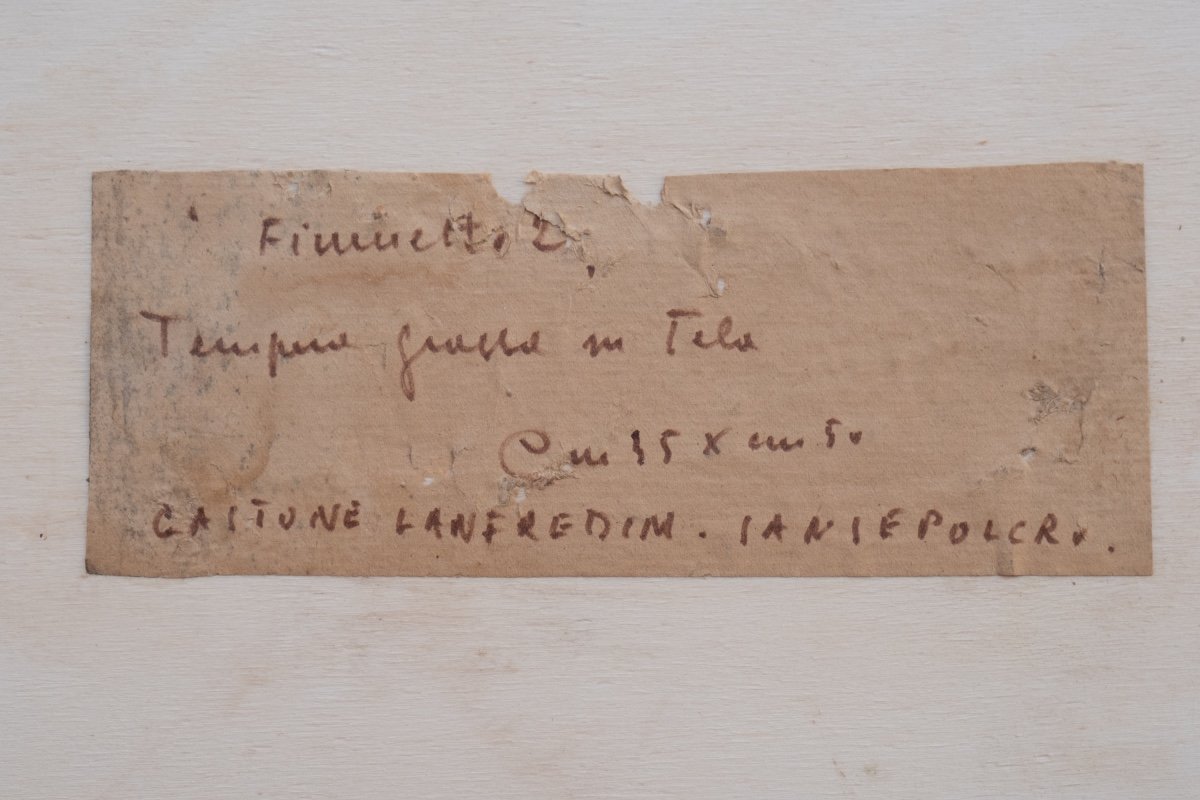 Fiumetto 2
Tempera grassa su Tela
Cm 35 x cm 50
GASTONE LANFREDINI. SANSEPOLCRO.